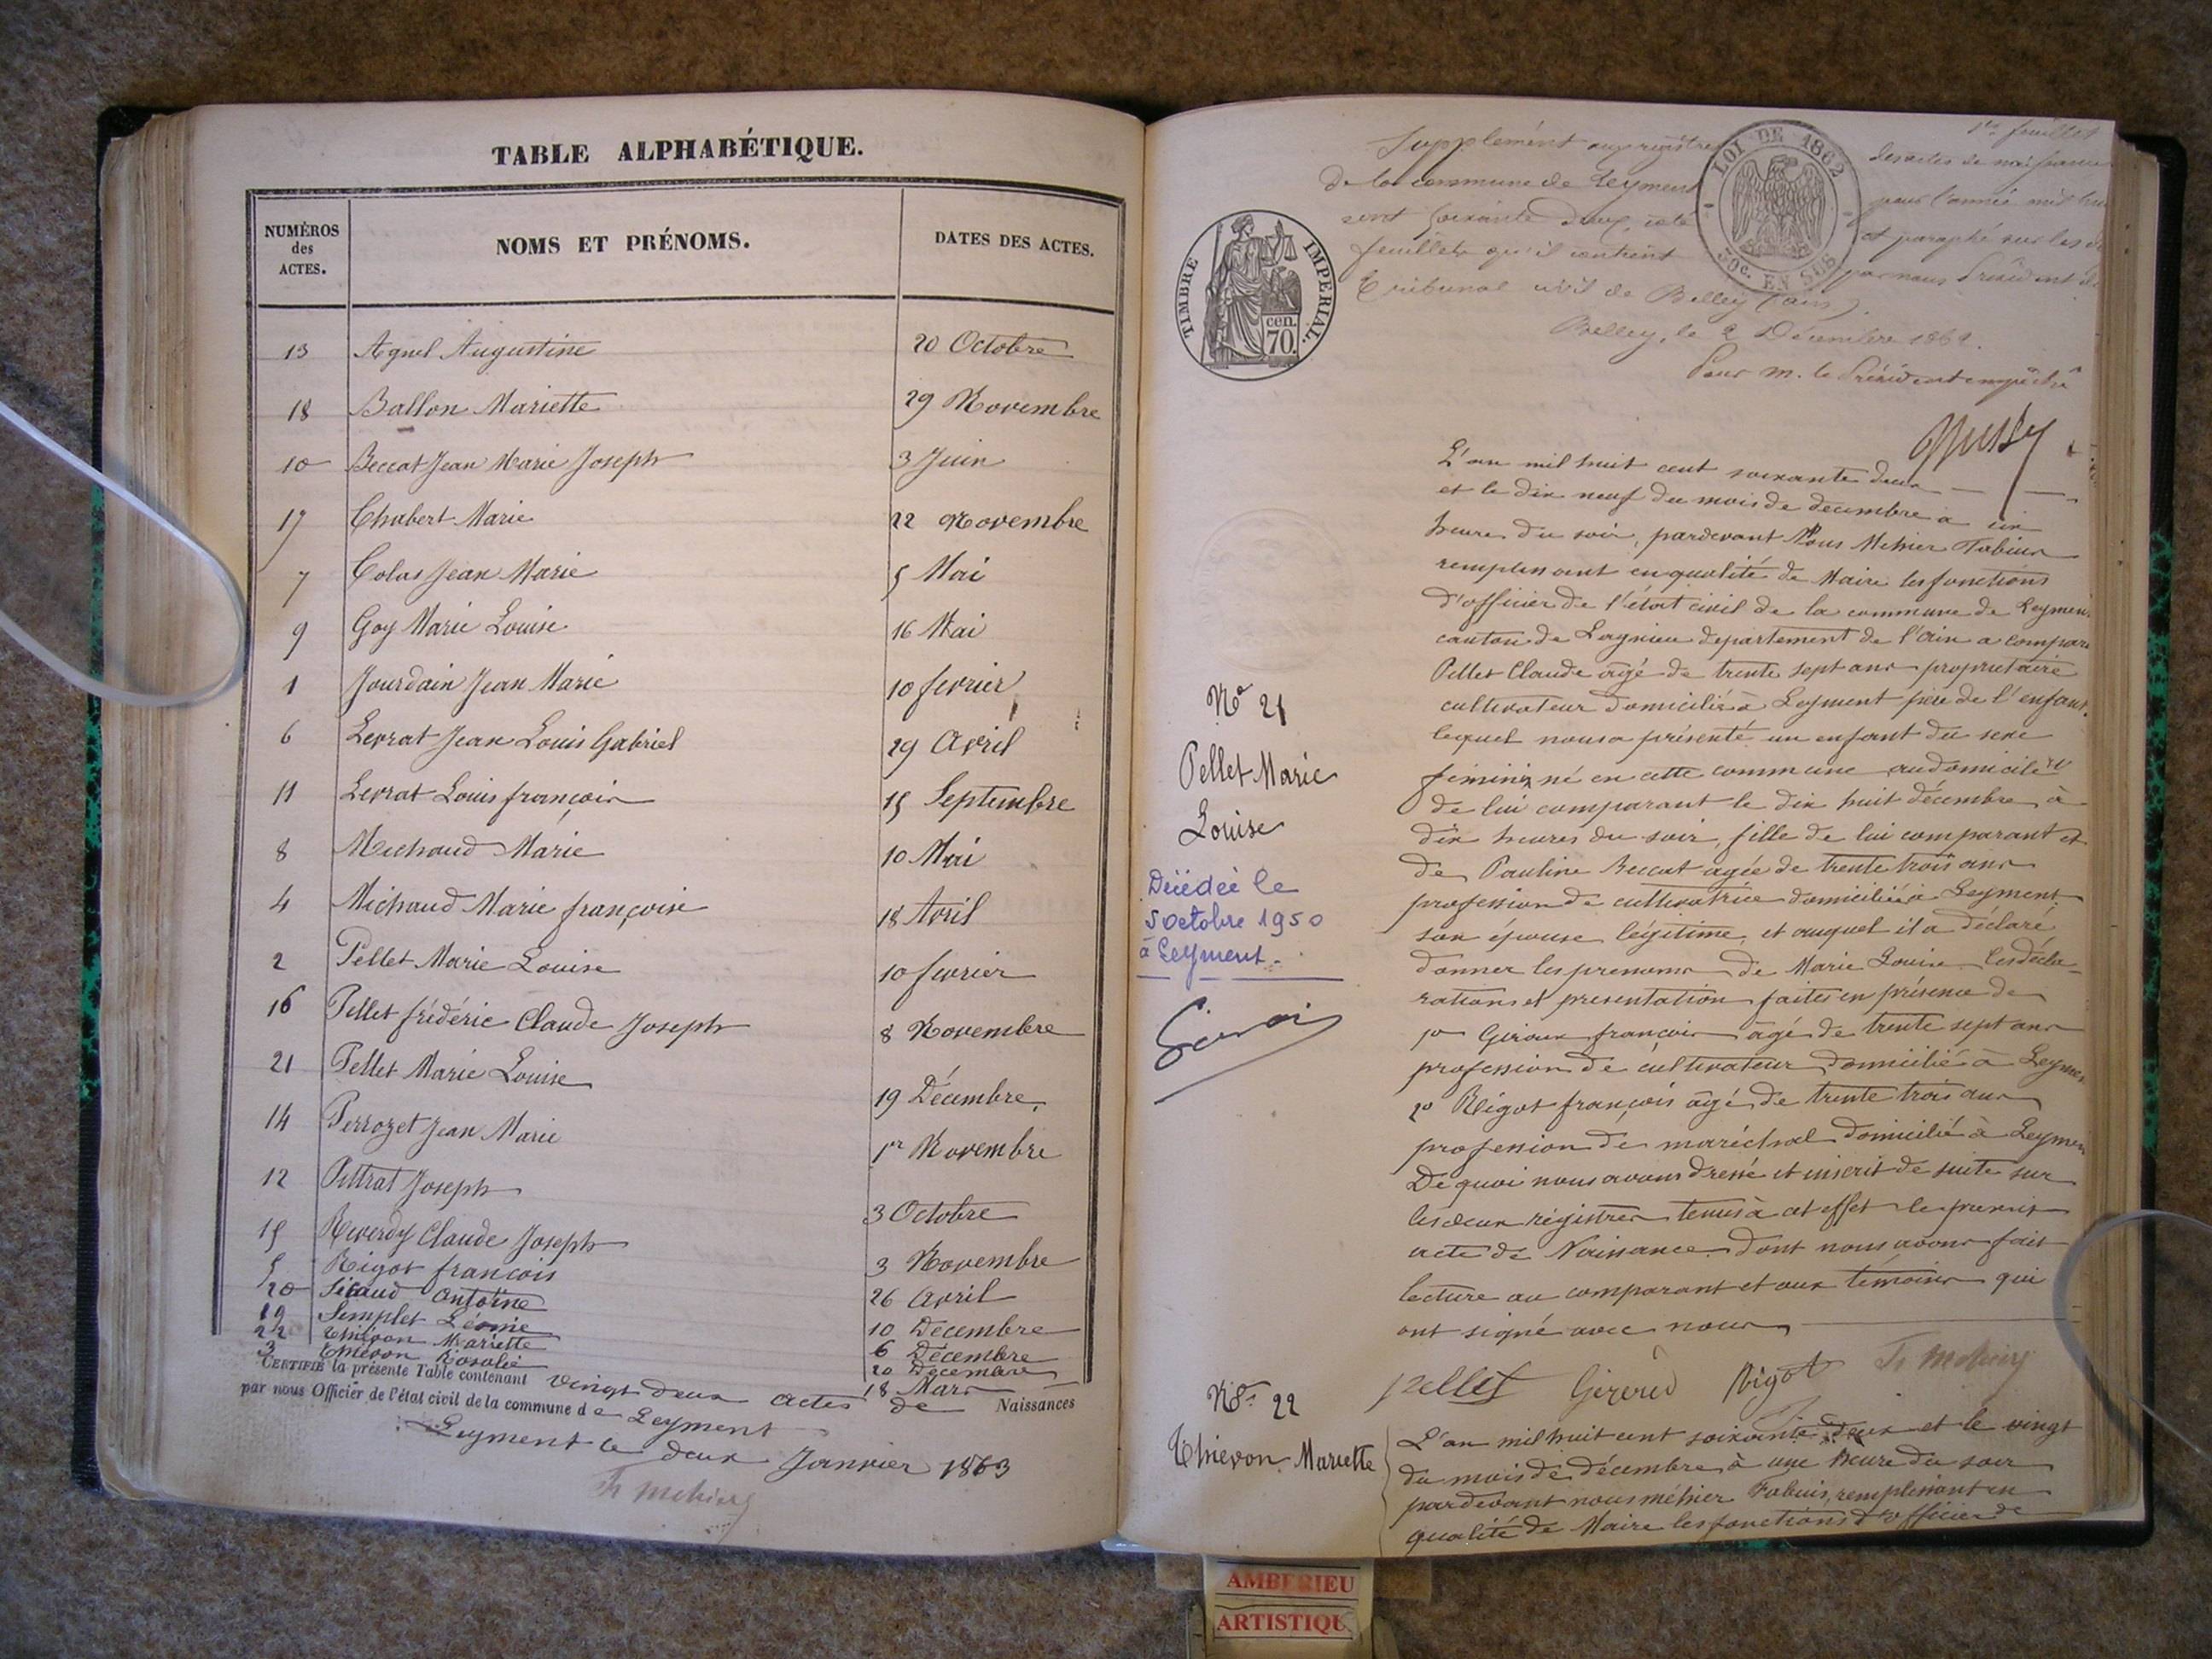 TABLE ALPHABÉTIQUE.
NUMÉROS des ACTES.
NOMS ET PRÉNOMS.
DATES DES ACTES.
13 Agnel Augustine 20 Octobre
18 Ballon Mariette 29 Novembre
10 Beccat Jean Marie Joseph 3 Juin
17 Chabert Marie 22 Novembre
7 Colas Jean Marie 5 Mai
9 Goy Marie Louise 16 Mai
1 Jourdain Jean Marie 10 fevrier
6 Levrat Jean Louis Gabriel 29 Avril
11 Levrat Louis françois 15 Septembre
8 Michaud Marie 10 Mai
4 Michaud Marie françoise 18 Avril
2 Pellet Marie Louise 10 fevrier
16 Pellet frédéric Claude Joseph 8 Novembre
21 Pellet Marie Louise 19 Décembre
14 Perrozet Jean Marie 1er Novembre
12 Pittrat Joseph 3 Octobre
15 Reverdy Claude Joseph 3 Novembre
5 Rigot francois 26 Avril
20 Sicaud Antoine 10 Decembre
19 Semplet Léonie 6 Décembre
22 Thievon Mariette 20 Decembre
3 Thievon Rosalie 18 Mars
CERTIFIÉ la présente Table contenant vingt deux actes de Naissances
par nous Officier de l'état civil de la commune de Leyment
Leyment le deux Janvier 1863
1er feuillet
Supplément aux registres des actes de naissance
De la commune de Leyment pour l'année mil hu
cent soixante deux, coté et paraphé sur les
feuillets qu'il contient par nous Président d
Tribunal civil de Belley (ain).
Belley, le 2 Décembre 1862.
Pour M. le Président empêché
LOI DE 1862
50c. EN SUS
TIMBRE IMPERIAL.
70 cen.
L'an mil huit cent soixante deux
et le dix neuf du mois de decembre a six
heures du soir, pardevant Nous Mehier Fabius
remplissant en qualité de Maire les fonctions
d'officier de l'état civil de la commune de Leyment
canton de Lagnieu departement de l'ain a compare
Pellet Claude âgé de trente sept ans proprietaire
cultivateur domicilié à Leyment père de l'enfant.
lequel nous a présenté un enfant du sexe
féminin né en cette commune au domicile
de lui comparant le dix huit décembre à
dix heures du soir, fille de lui comparant et
de Pauline Beccat agée de trente trois ans
profession de cultivatrice domiciliée à Leyment
son épouse légitime, et auquel il a déclaré
donner les prenoms de Marie Louise. Les décla-
rations et presentation faites en présence de
1o françois âgé de trente sept ans
profession de cultivateur domicilié à Leymen
2o Rigot françois âgé de trente trois ans
profession de maréchal domicilié à Leymen
De quoi nous avons dressé et inscrit de suite sur
les deux régistres tenus à cet effet le present
acte de Naissance dont nous avons fait
lecture au comparant et aux témoins qui
ont signé avec nous
Pellet Rigot
No 21
Pellet Marie
Louise
Décédée le
5 octobre 1950
à Leyment.
No 22
Thievon Mariette
L'an mil huit cent soixante deux et le vingt
du mois de décembre à une heure du soir
pardevant nous méhier Fabius, remplissant en
qualité de Maire les fonctions d'officier de
AMBERIEU
ARTISTIQU